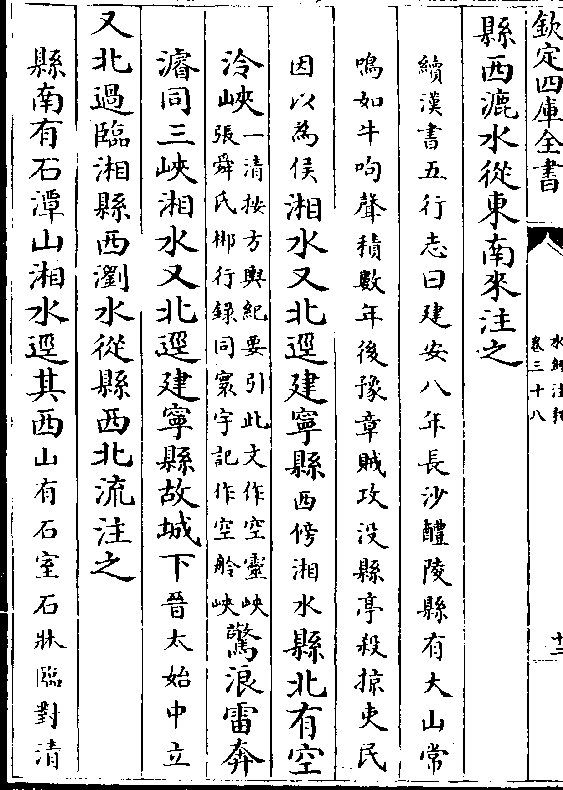 欽定四庫全書
水經注釋
卷三十八
十二
縣西漉水從東南來注之
續漢書五行志曰建安八年長沙醴陵縣有大山常
鳴如牛呴聲積數年後豫章賊攻没縣亭殺掠吏民
因以為侯湘水又北逕建寧縣西傍湘水縣北有空
泠峽一清按方輿紀要引此文作空靈峽張舜民郴行録同寰宇記作空舲峽驚浪雷奔
濬同三峽湘水又北逕建寧縣故城下晉太始中立
又北過臨湘縣西瀏水從縣西北流注之
縣南有石潭山湘水逕其西山有石室石牀臨對清